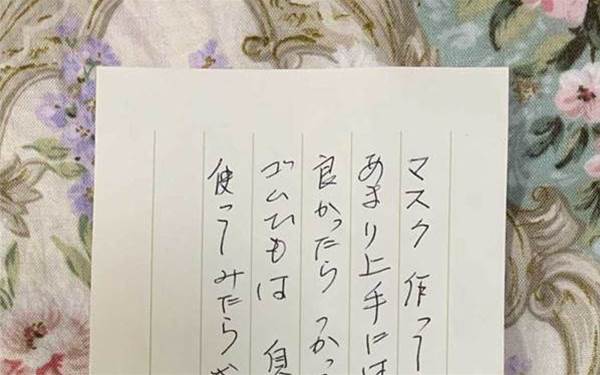 マスク 作って
あまり上手には
良かったら つかっ
ゴムひもは
使ってみたら